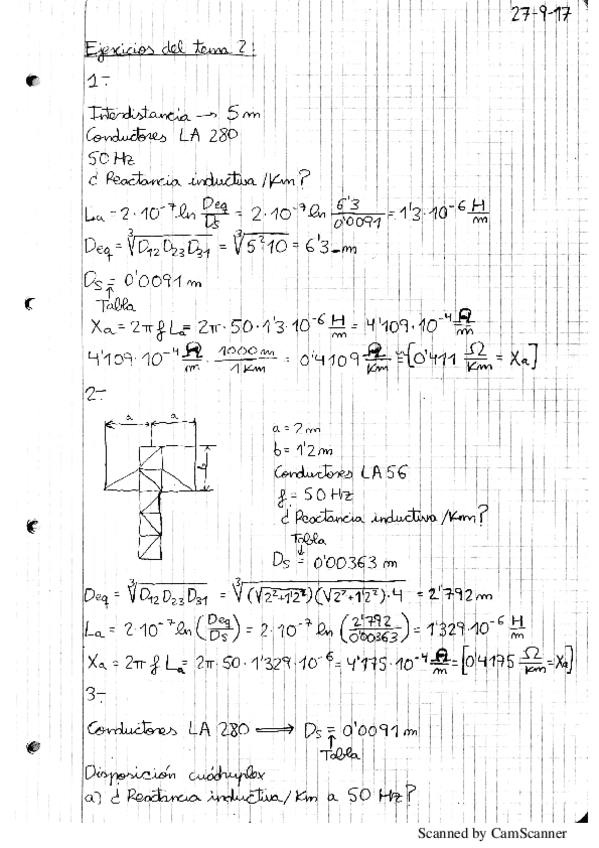 27-9-17
Ejercicios del tema 2:
1-
Interdistancia → 5 m
Conductores LA 280
50 Hz
¿ Reactancia inductiva /Km?
La = 2·10⁻⁷ ln Deq/Ds = 2·10⁻⁷ ln 6'3/0'0091 = 1'3·10⁻⁶ H/m
Deq = ∛(D12 D23 D31) = ∛(5²·10) = 6'3 m
Ds = 0'0091 m
↑
Tabla
Xa = 2π f La = 2π·50·1'3·10⁻⁶ H/m = 4'109·10⁻⁴ Ω/m
4'109·10⁻⁴ Ω/m · 1000 m/1 Km = 0'4109 Ω/Km ≈ [0'411 Ω/Km = Xa]
2-
a a
b
a = 2 m
b = 1'2 m
Conductores LA 56
f = 50 Hz
¿ Reactancia inductiva /Km?
Tabla
↓
Ds = 0'00363 m
Deq = ∛(D12 D23 D31) = ∛((√(2²+1'2²))(√(2²+1'2²))·4) = 2'792 m
La = 2·10⁻⁷ ln (Deq/Ds) = 2·10⁻⁷ ln (2'792/0'00363) = 1'329·10⁻⁶ H/m
Xa = 2π f La = 2π·50·1'329·10⁻⁶ = 4'175·10⁻⁴ Ω/m = [0'4175 Ω/Km = Xa]
3-
Conductores LA 280 ⟹ Ds = 0'0091 m
↑
Tabla
Disposición cuádruplex
a) ¿ Reactancia inductiva/Km a 50 Hz?
Scanned by CamScanner